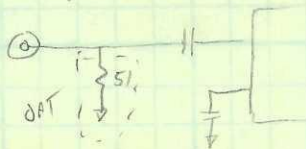 51
OPT